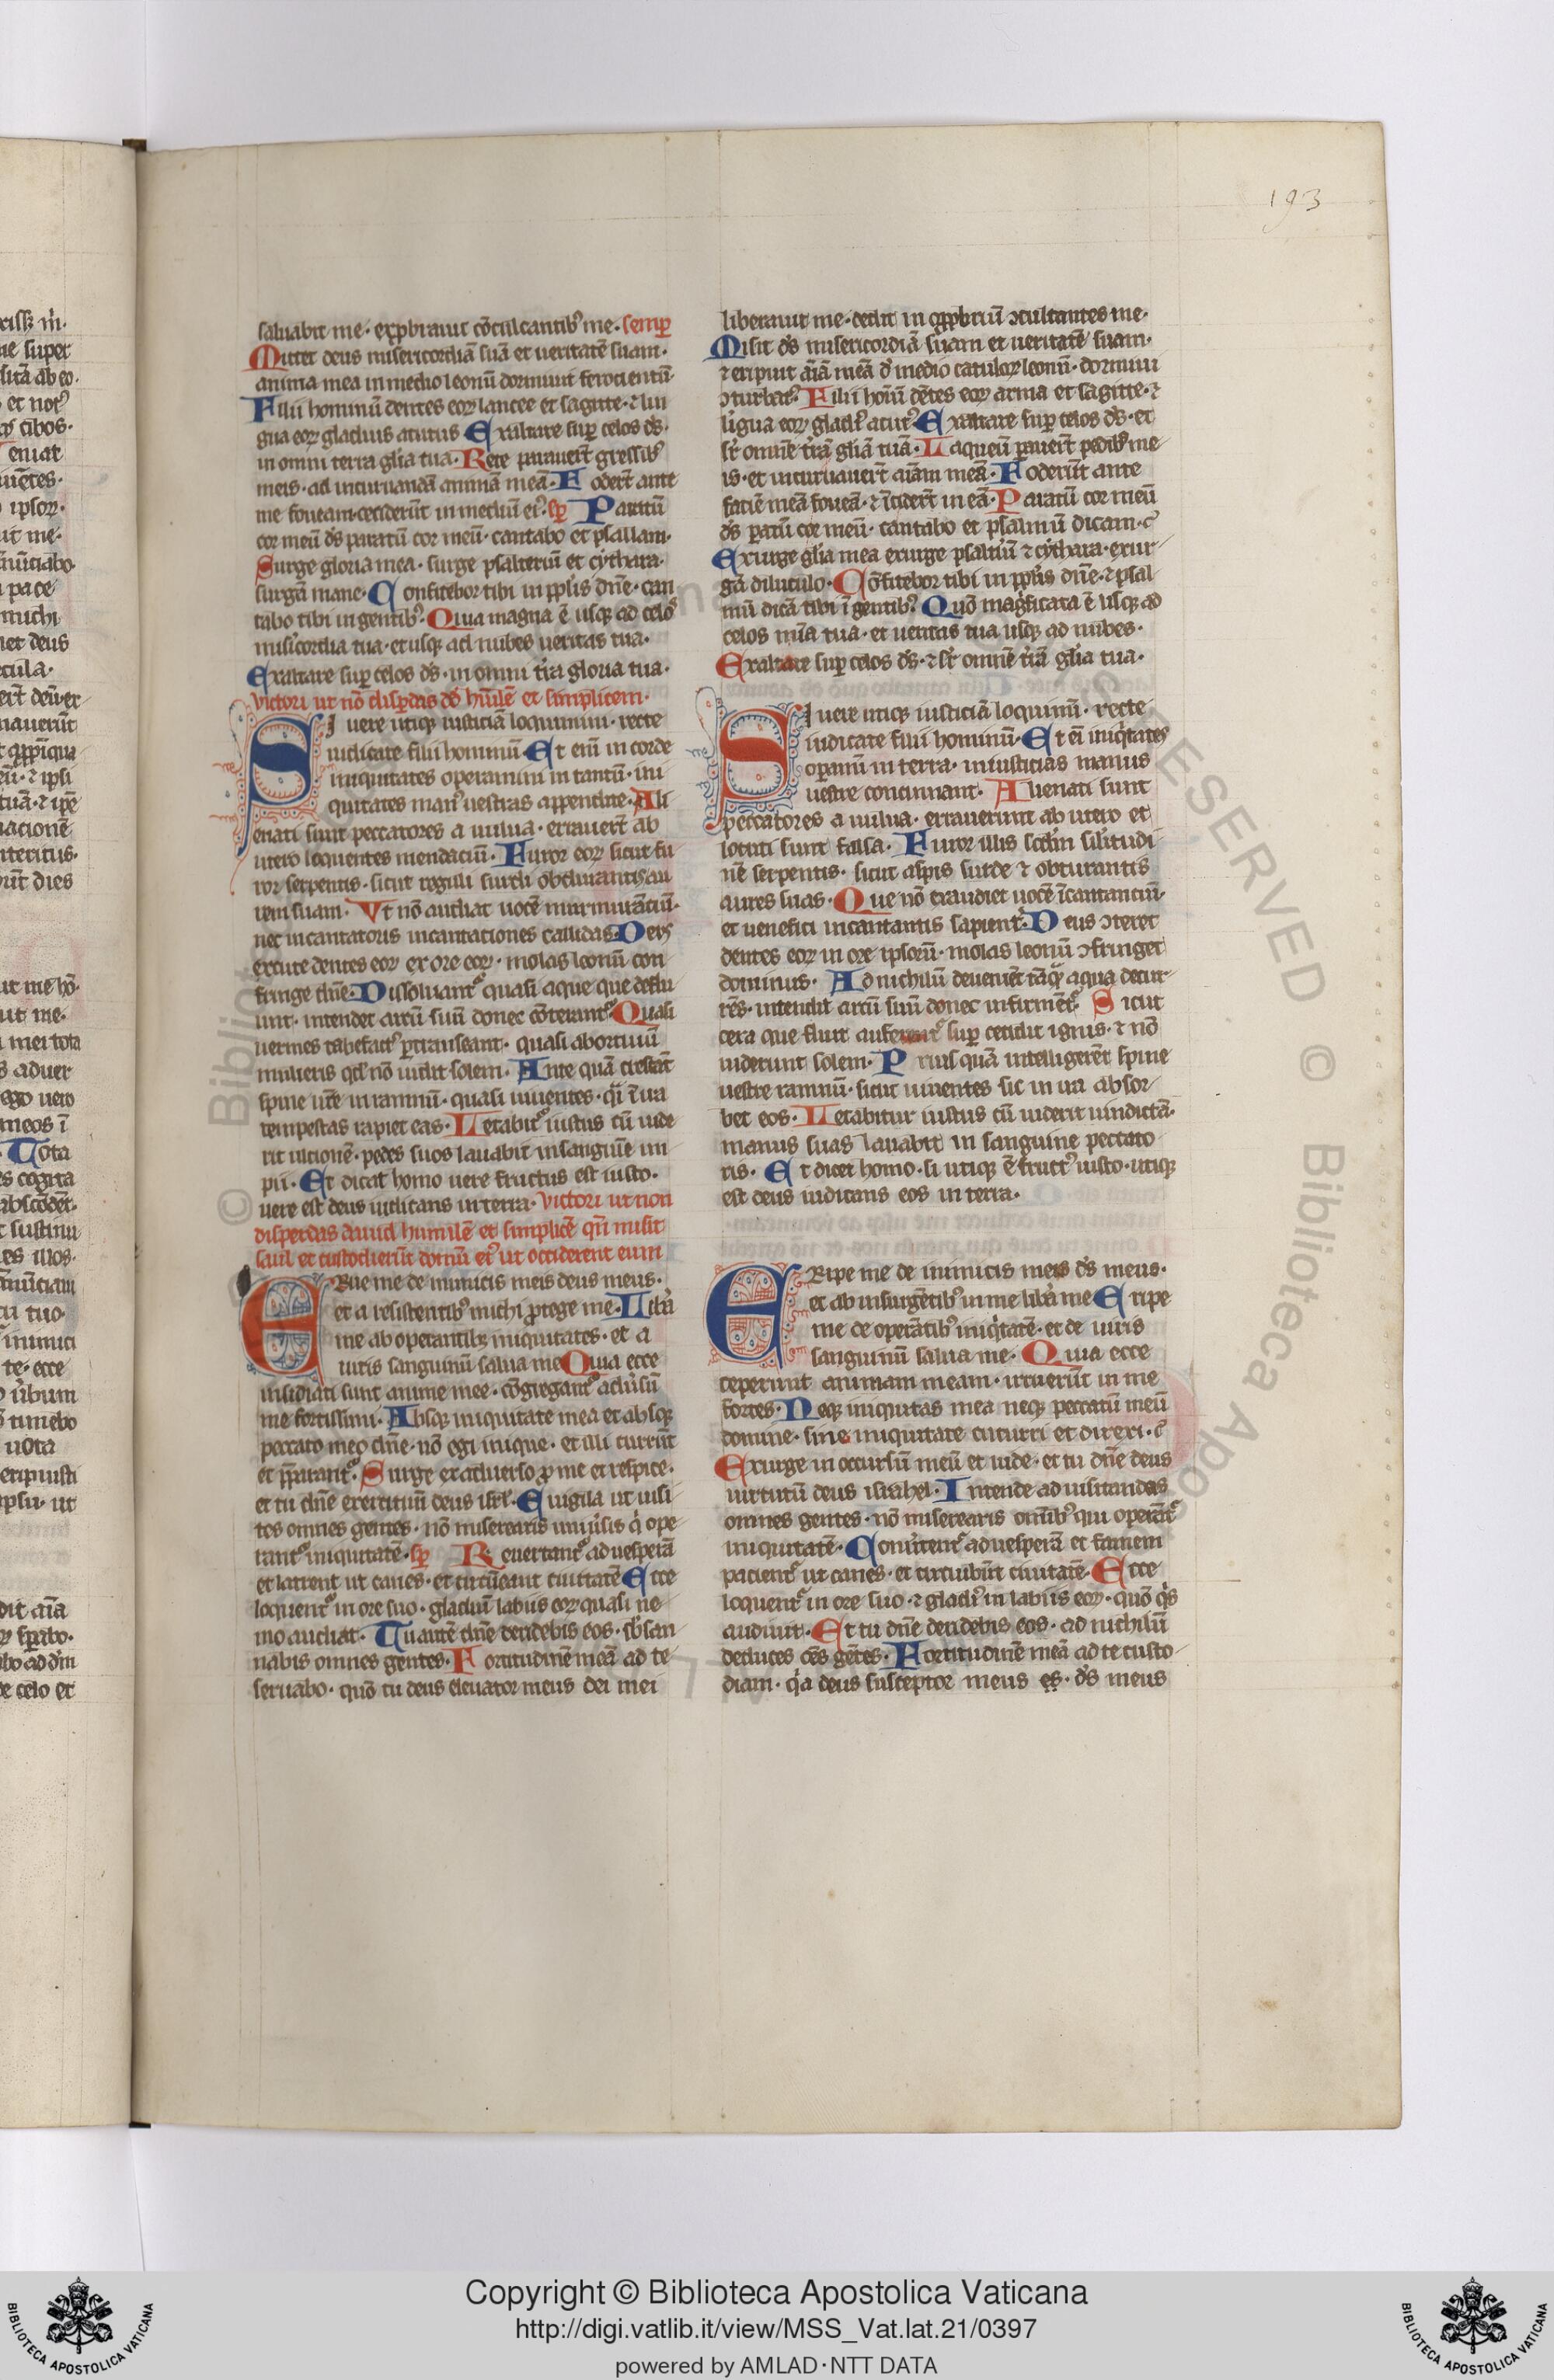 193
saluabit me · exprobrauit cōculcantib⁹ me · semp
Mittet deus misericordiā suā et ueritatē suam ·
anima mea in medio leonū dormiuit ferocientū ·
Filii hominū dentes eoꝝ lancee et sagitte · ⁊ lin
gua eoꝝ gladius acutus Exaltare suꝑ celos ds̄ ·
in omni terra glīa tua · Rete parauerūt gressib⁹
meis · ad incuruandā animā meā · Foderūt ante
me foueam · ceciderūt in mediū ei⁹ · sꝑ Paratū
cor meū ds̄ paratū cor meū · cantabo et psallam ·
Surge gloria mea · surge psalteriū et cythara ·
surgā mane · Confitebor tibi in pp̄lis dn̄e · can
tabo tibi in gentib⁹ · Quia magna ē usqꝫ ad celos
misīcordia tua · et usqꝫ ad nubes ueritas tua ·
Exaltare suꝑ celos ds̄ · in omni t̄ra gloria tua ·
victori ut nō disꝑdas dd̄ hūilē et simplicem ·
SI uere utiqꝫ iusticiā loquimini · recte
iudicate filii hominū · Et enī in corde
iniquitates operamini in tantū · ini
quitates man⁹ uestras appendite · Ali
enati sunt peccatores a uulua · errauer̄t ab
utero loquentes mendaciū · Furor eoꝝ sicut fu
ror serpentis · sicut reguli surdi obdurantis au
rem suam · Vt nō audiat uocē murmurātiū ·
nec incantatoris incantationes callidas · Deus
excute dentes eoꝝ ex ore eoꝝ · molas leonū con
fringe dn̄e · Dissoluant᷑ quasi aque que deflu
unt · intendet arcū suū donec cōterant᷑ · Quasi
uermes tabefact⁹ ꝑtranseant · quasi abortiuū
mulieris qd̄ nō uidit solem · Ante quā crescāt
spine ur̄e in ramnū · quasi uiuentes · qͣsi ī ira
tempestas rapiet eas · Letabit᷑ iustus cū uide
rit ultionē · pedes suos lauabit in sanguīe im
pii · Et dicat homo uere fructus est iusto ·
uere est deus iudicans in terra · Victori ut non
disperdas dauid humilē et simplicē qn̄ misit
saul et custodierūt domū ei⁹ ut occiderent eum
ERue me de inimicis meis deus meus ·
et a resistentib⁹ michi ꝓtege me · Libā
me ab operantibꝫ iniquitates · et a
uiris sanguinū salua me Quia ecce
insidiati sunt anime mee · cōgregant᷑ aduīsū
me fortissimi · Absqꝫ iniquitate mea et absqꝫ
peccato meo dn̄e · nō egi inique · et illi currūt
et p̄parant᷑ · Surge ex aduerso ꝓ me et respice ·
et tu dn̄e exercituū deus isrl̄ · Euigila ut uisi
tes omnes gentes · nō miserearis uniūsis qͥ ope
rant᷑ iniquitatē · sꝑ Reuertant᷑ ad uesperā
et latrent ut canes · et circūeant ciuitatē Ecce
loquent᷑ in ore suo · gladiū labiis eoꝝ quasi ne
mo audiat · Tu autē dn̄e deridebis eos · sb̄san
nabis omnes gentes · Fortitudinē meā ad te
seruabo · quō tu deus eleuator meus dei mei
liberauit me · dedit in opprobriū ↄculcantes me ·
Misit ds̄ misericordiā suam et ueritatē suam ·
⁊ eripuit aīā meā d̄ medio catuloꝝ leonū · dormiui
ↄturbat⁹ · Filii hoīū dētes eoꝝ arma et sagitte · ⁊
līgua eoꝝ gladi⁹ acut⁹ · Exaltare suꝑ celos ds̄ · et
sr̄ omnē t̄rā gl̄iā tuā · Laqueū ꝑauer̄t pedib⁹ me
is · et incuruauer̄t aīam meā · Foderūt ante
faciē meā foueā · ⁊ īcider̄t in eā · Paratū cor meū
ds̄ ꝑatū cor meū · cantabo et psalmū dicam ·
Exurge gl̄ia mea exurge psaltiū ⁊ cythara · exur
gā diluculo · Cōfitebor tibi in pp̄lis dn̄e · ⁊ psal
mū dicā tibi ī gentib⁹ · Quō magͥficata ē usqꝫ ad
celos mīa tua · et ueritas tua usqꝫ ad nubes ·
Exaltare suꝑ celos ds̄ · ⁊ sr̄ omnē t̄rā gl̄ia tua ·
SI uere utiqꝫ iusticiā loquinū · recte
iudicate filii hominū · Et eī iniqͥtates
oꝑamī in terra · iniusticias manus
uestre concinnant · Alienati sunt
peccatores a uulua · errauerunt ab utero et
locuti sunt falsa · Furor illis scd̄m silitudi
nē serpentis · sicut aspis surde ⁊ obturantis
aures suas · Que nō exaudiet uocē īcantanciū ·
et uenefici incantantis sapient᷑ · Deus ↄteret
dentes eoꝝ in ore ipsorū · molas leonū ↄfringet
dominus · Ad nichilū deueniēt tāqͣ aqua decur
rēs · intendit arcū suū donec infirmēt᷑ · Sicut
cera que fluit auferent᷑ suꝑ cecidit ignis · ⁊ nō
uiderunt solem · Prius quā intelligerēt spine
uestre ramnū · sicut uiuentes sic in ira absor
bet eos · Letabitur iustus cū uiderit uindictā ·
manus suas lauabit in sanguine peccato
ris · Et dicet homo · si utiqꝫ ē fruct⁹ iusto · utiqꝫ
est deus iudicans eos in terra ·
ERipe me de inimicis meis ds̄ meus ·
et ab insurgētib⁹ in me libā me Eripe
me de operātib⁹ iniqͥtatē · et de uiris
sanguinū salua me · Quia ecce
ceperunt animam meam · irruerūt in me
fortes · Neqꝫ iniquitas mea neqꝫ peccatū meū
domine · sine iniquitate cucurri et direxi ·
Exurge in occursū meū et uide · et tu dn̄e deus
uirtutū deus israhel · Intende ad uisitandas
omnes gentes · nō miserearis omīb⁹ qui operāt᷑
iniquitatē · Conūtent᷑ ad uesperā et famem
pacient᷑ ut canes · et circuibūt ciuitatē · Ecce
loquent᷑ in ore suo · ⁊ gladi⁹ in labiis eoꝝ · quō qͥs
audiuit · Et tu dn̄e deridebis eos · ad nichilū
deduces oēs gētes · Fortitudinē meā ad te custo
diam · qͥa deus susceptor meus es · ds̄ meus
Copyright © Biblioteca Apostolica Vaticana
http://digi.vatlib.it/view/MSS_Vat.lat.21/0397
powered by AMLAD·NTT DATA
BIBLIOTECA APOSTOLICA VATICANA
BIBLIOTECA APOSTOLICA VATICANA